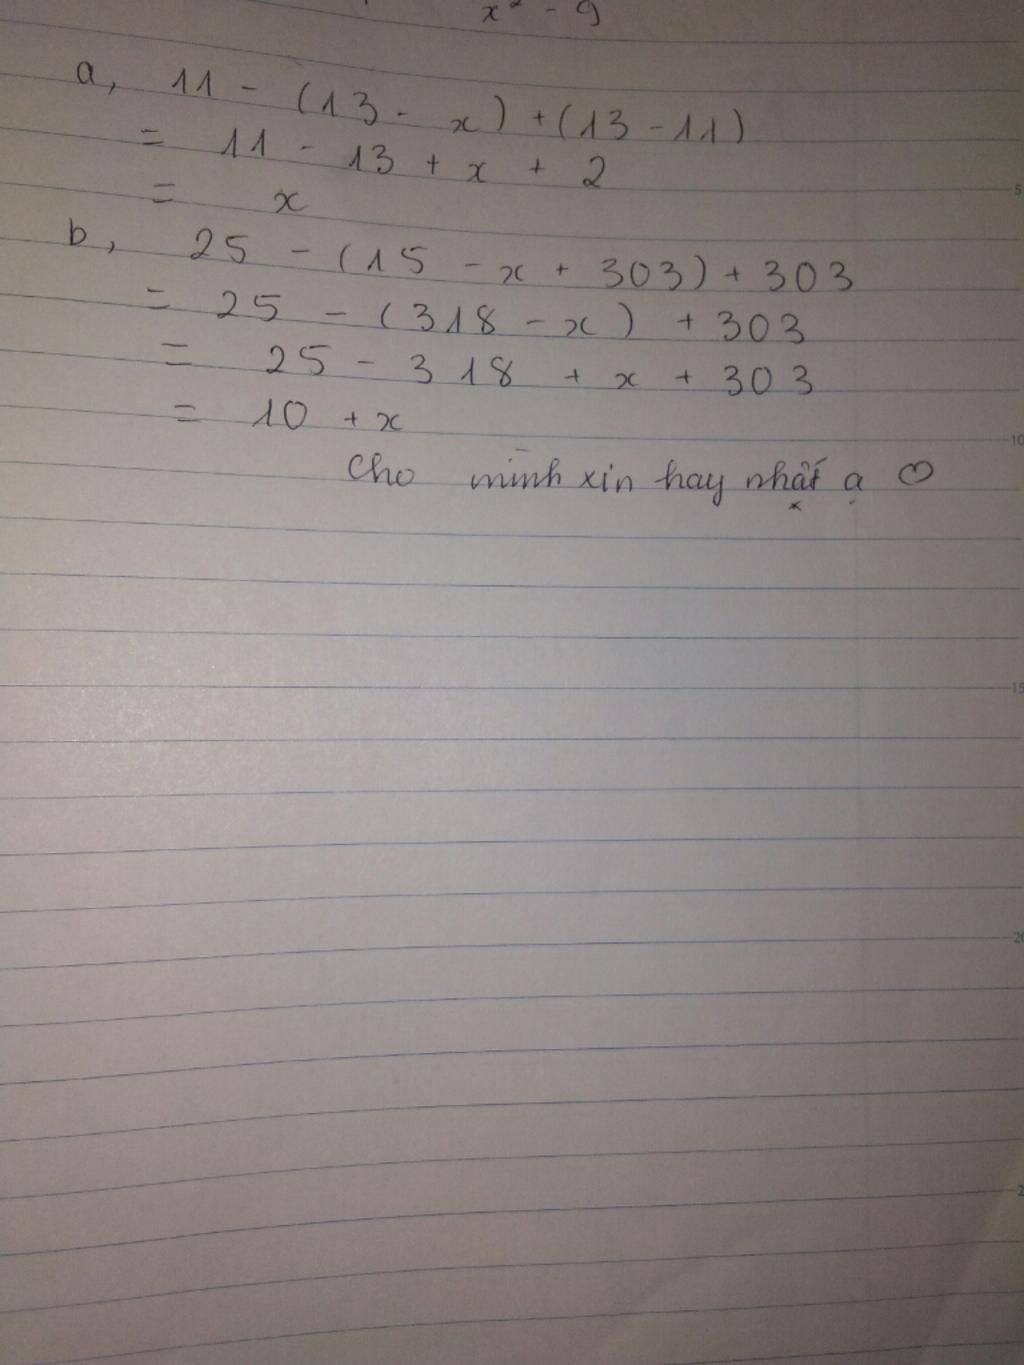 x² - 9
a, 11 - (13 - x) + (13 - 11)
= 11 - 13 + x + 2
= x
b, 25 - (15 - x + 303) + 303
= 25 - (318 - x) + 303
= 25 - 318 + x + 303
= 10 + x
Cho mình xin hay nhất ạ ♡
5
10
15
20
2